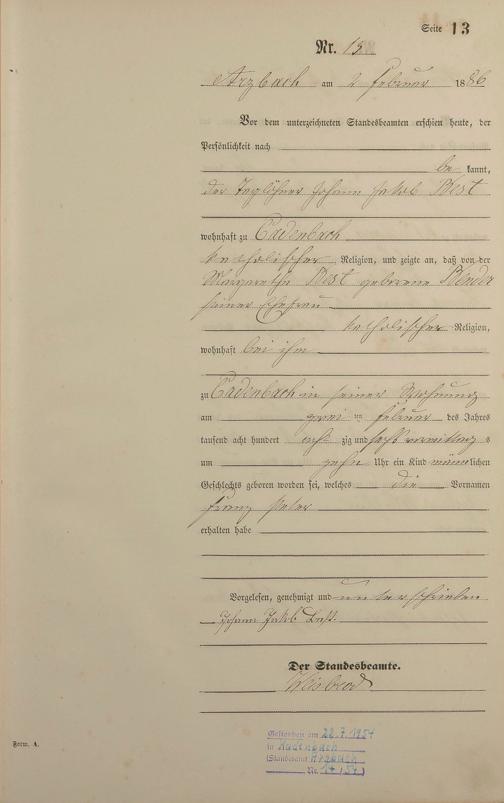 Seite 13
Nr. 13
Arzbach am 2 Februar 1886
Vor dem unterzeichneten Standesbeamten erschien heute, der
Persönlichkeit nach
be kannt,
der Taglöhner Johann Jakob Best
wohnhaft zu Cadenbach
katholischer Religion, und zeigte an, daß von der
Margaretha Best geborene Binder
seiner Ehefrau
katholischer Religion,
wohnhaft bei ihm
zu Cadenbach in seiner Wohnung
am zwei ten Februar des Jahres
tausend acht hundert acht zig und sechs vormittag s
um zehn Uhr ein Kind männlichen
Geschlechts geboren worden sei, welches die Vornamen
Franz Peter
erhalten habe
Vorgelesen, genehmigt und unterschrieben
Johann Jakob Best
Der Standesbeamte.
Gestorben am 22.7.1954
in Kadenbach
(Standesamt Arzbach
Nr.
Form. A.